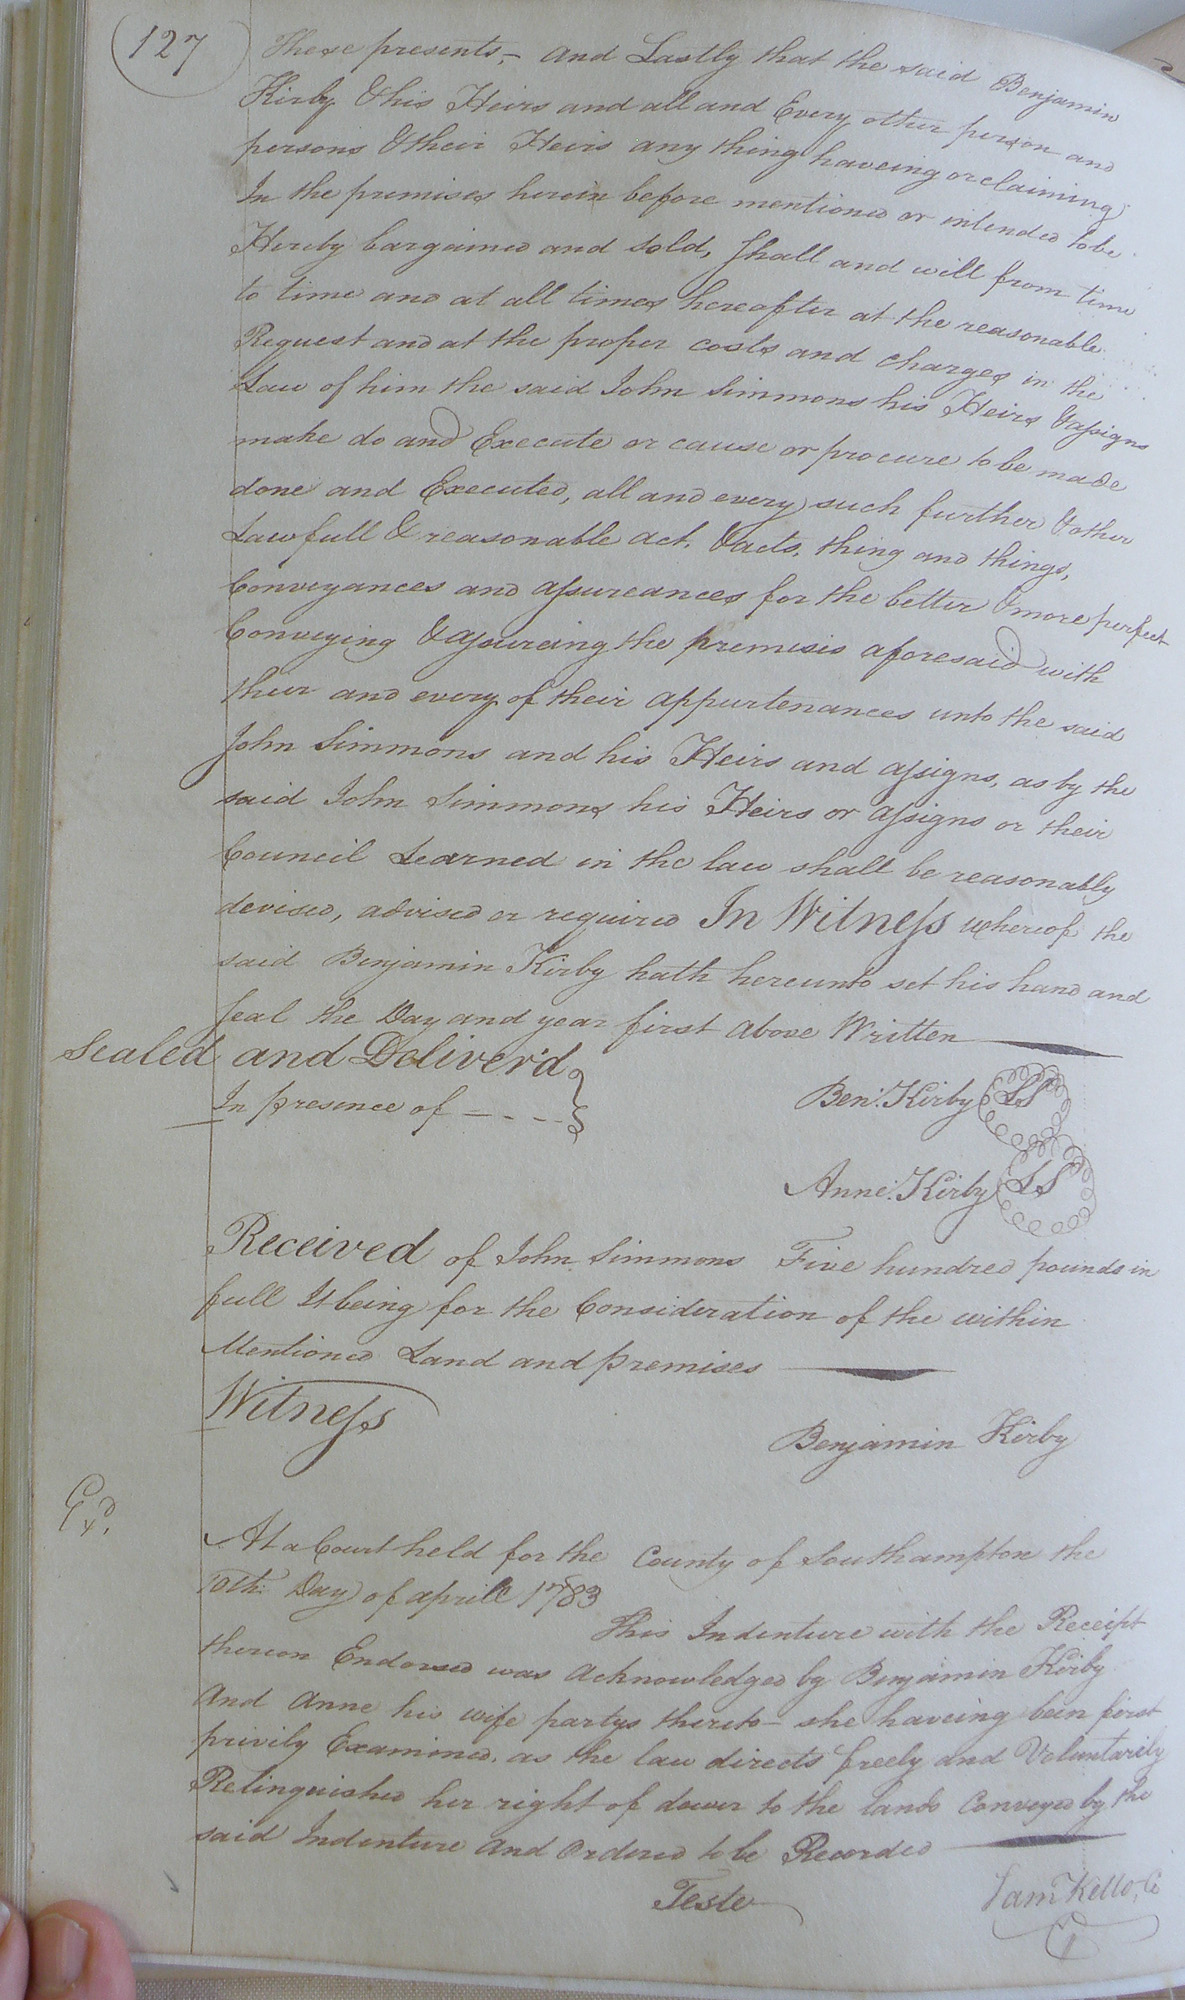 127
These presents,- and Lastly that the said Benjamin
Kirby & his Heirs and all and Every other person and
persons & their Heirs any thing haveing or claiming
In the premises herein before mentioned or intended to be
Hereby bargained and sold, shall and will from time
to time and at all times hereafter at the reasonable
Request and at the proper costs and charges in the
Law of him the said John Simmons his Heirs & assigns
make do and Execute or cause or procure to be made
done and Executed, all and every such further & other
Lawfull & reasonable act, & acts, thing and things,
Conveyances and assureances for the better & more perfect
Conveying & assureing the premisis aforesaid with
their and every of their appurtenances unto the said
John Simmons and his Heirs and assigns, as by the
said John Simmons his Heirs or assigns or their
Council Learned in the law shall be reasonably
devised, advised or required In Witness whereof the
said Benjamin Kirby hath hereunto set his hand and
seal the Day and year first above Written
Sealed and Deliver'd
In presence of - - - -
Ben: Kirby LS
Anne: Kirby LS
Received of John Simmons Five hundred pounds in
full It being for the Consideration of the within
Mentioned Land and premises
Witness
Benjamin Kirby
At a Court held for the County of Southampton the
10th: Day of aprill 1783
This Indenture with the Receipt
thereon Endorsed was acknowledged by Benjamin Kirby
And Anne his wife partys thereto- she haveing been first
privily Examined, as the law directs freely and Voluntarily
Relinquished her right of dower to the lands Conveyed by the
said Indenture and ordered to be Recorded
Teste
Sam Kello, C